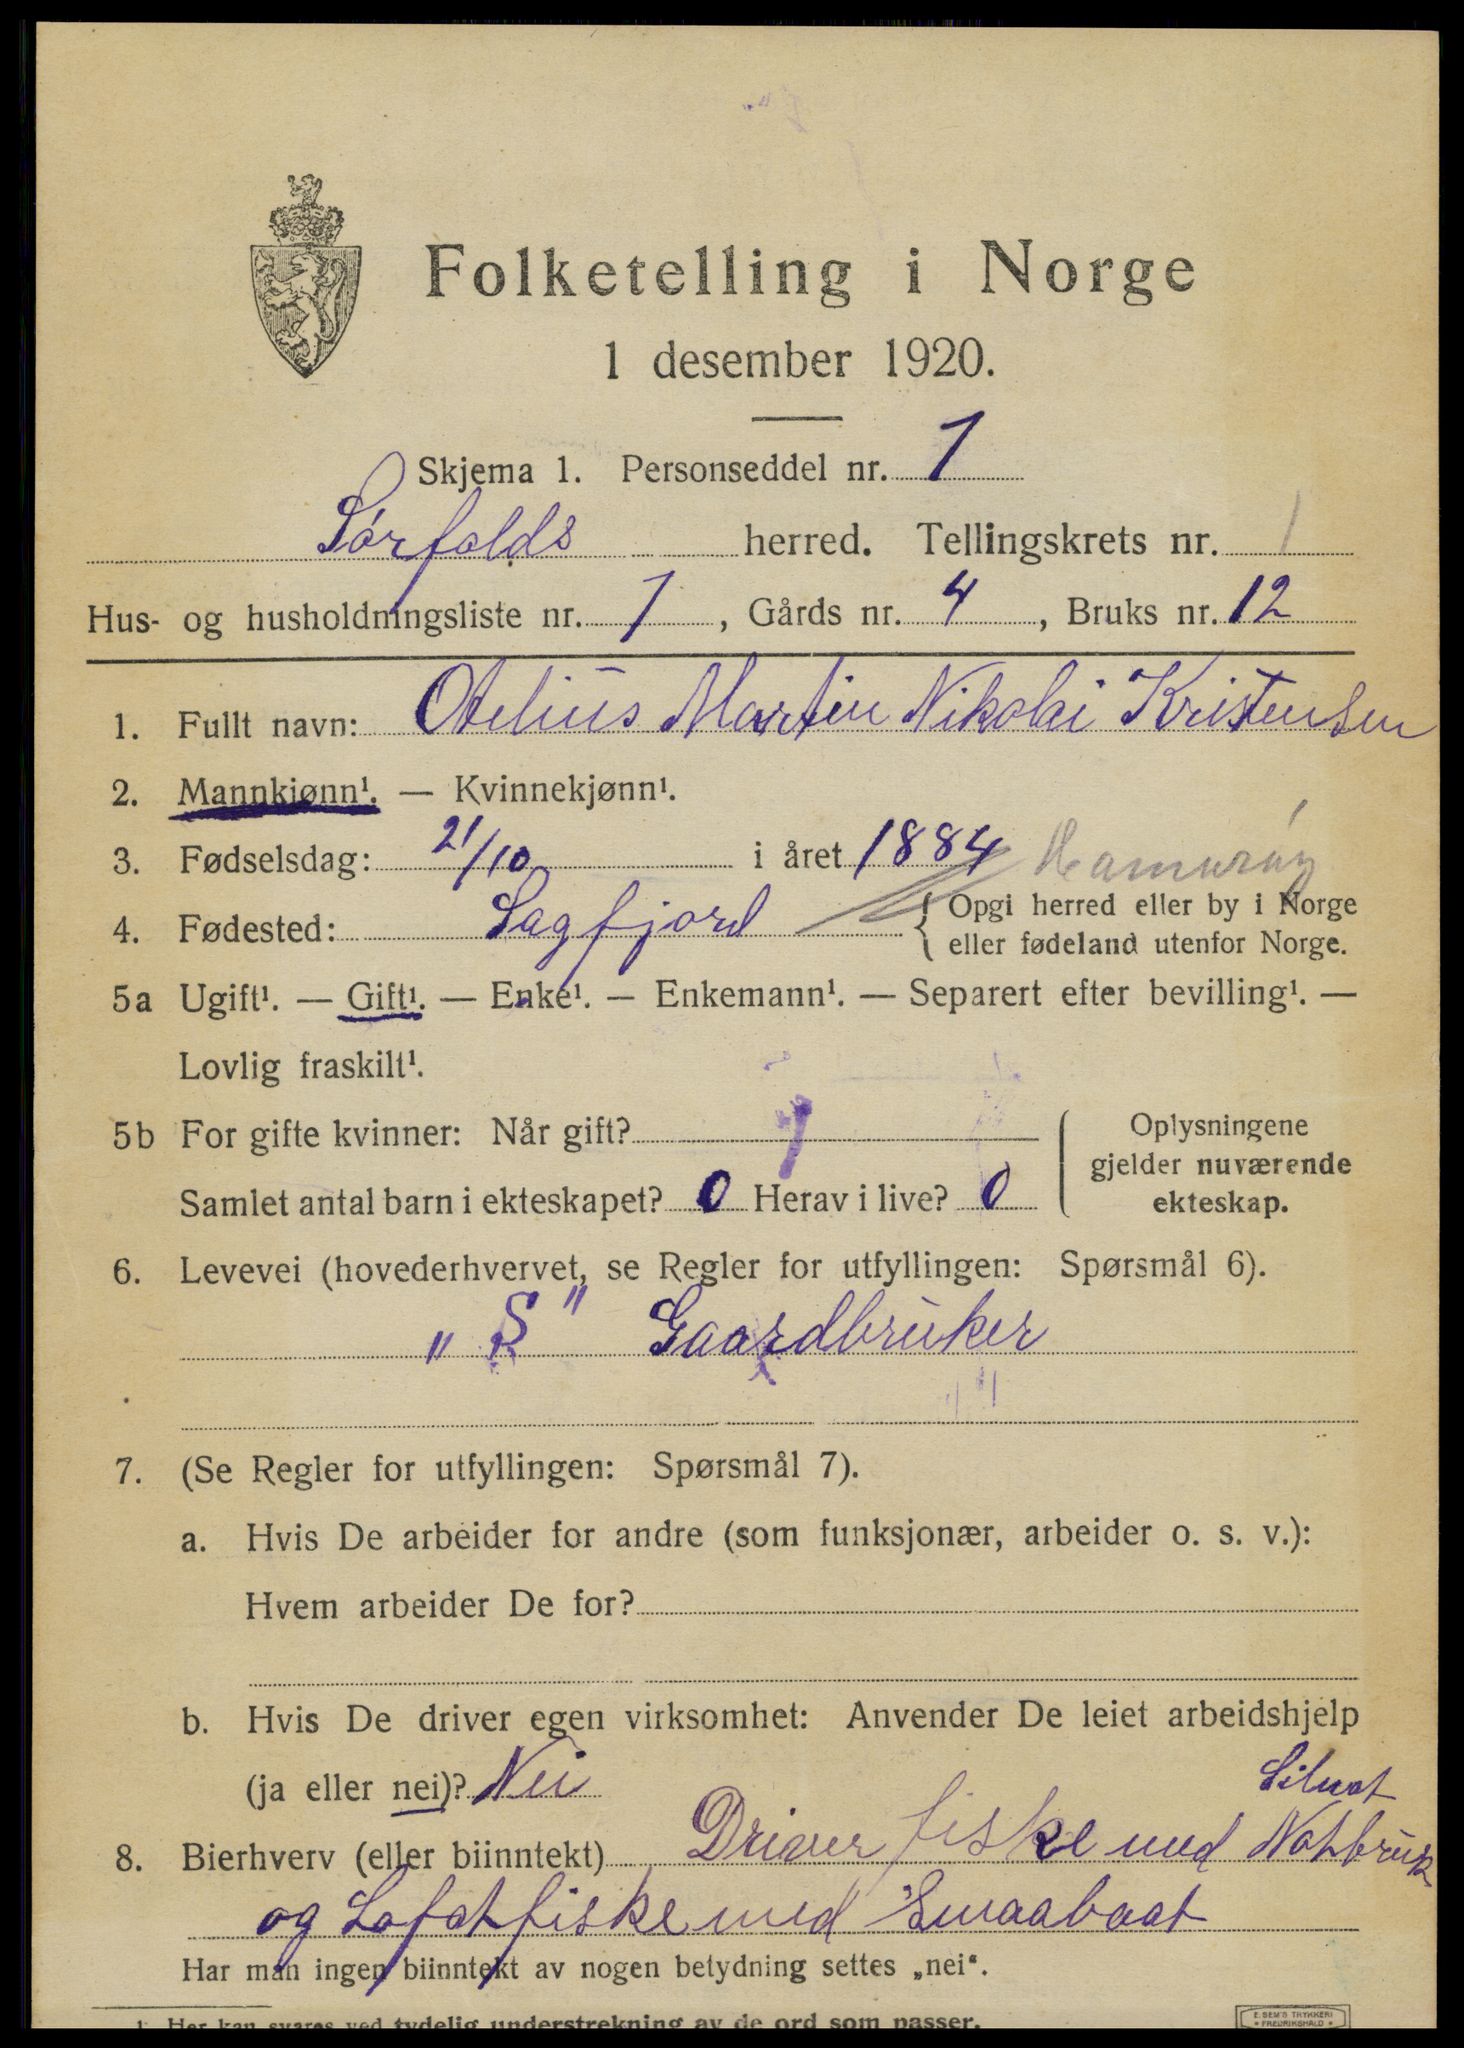 Folketelling i Norge
1 desember 1920.
Skjema 1. Personseddel nr. 1
Sórfolds herred. Tellingskrets nr. 1
Hus- og husholdningsliste nr. 1, Gårds nr. 4, Bruks nr. 12
1. Fullt navn: Otelius Martin Nikolai Kristensen
2. Mannkjønn¹. — Kvinnekjønn¹.
3. Fødselsdag: 21/10 i året 1884 Hamarøy
4. Fødested: Sagfjord { Opgi herred eller by i Norge
eller fødeland utenfor Norge.
5a Ugift¹. — Gift¹. — Enke¹. — Enkemann¹. — Separert efter bevilling¹. —
Lovlig fraskilt¹.
5b For gifte kvinner: Når gift?
Samlet antal barn i ekteskapet? 0 Herav i live? 0
Oplysningene
gjelder nuværende
ekteskap.
6. Levevei (hovederhvervet, se Regler for utfyllingen: Spørsmål 6).
"S" Gaardbruker
7. (Se Regler for utfyllingen: Spørsmål 7).
a. Hvis De arbeider for andre (som funksjonær, arbeider o. s. v.):
Hvem arbeider De for?
b. Hvis De driver egen virksomhet: Anvender De leiet arbeidshjelp
(ja eller nei)? Nei
8. Bierhverv (eller biinntekt) Driver fiske med Notbruk
og Lofotfiske med Smaabaat
Har man ingen biinntekt av nogen betydning settes „nei“.
1. Her kan svares ved tydelig understrekning av de ord som passer.
E. SEM'S TRYKKERI
FREDRIKSHALD